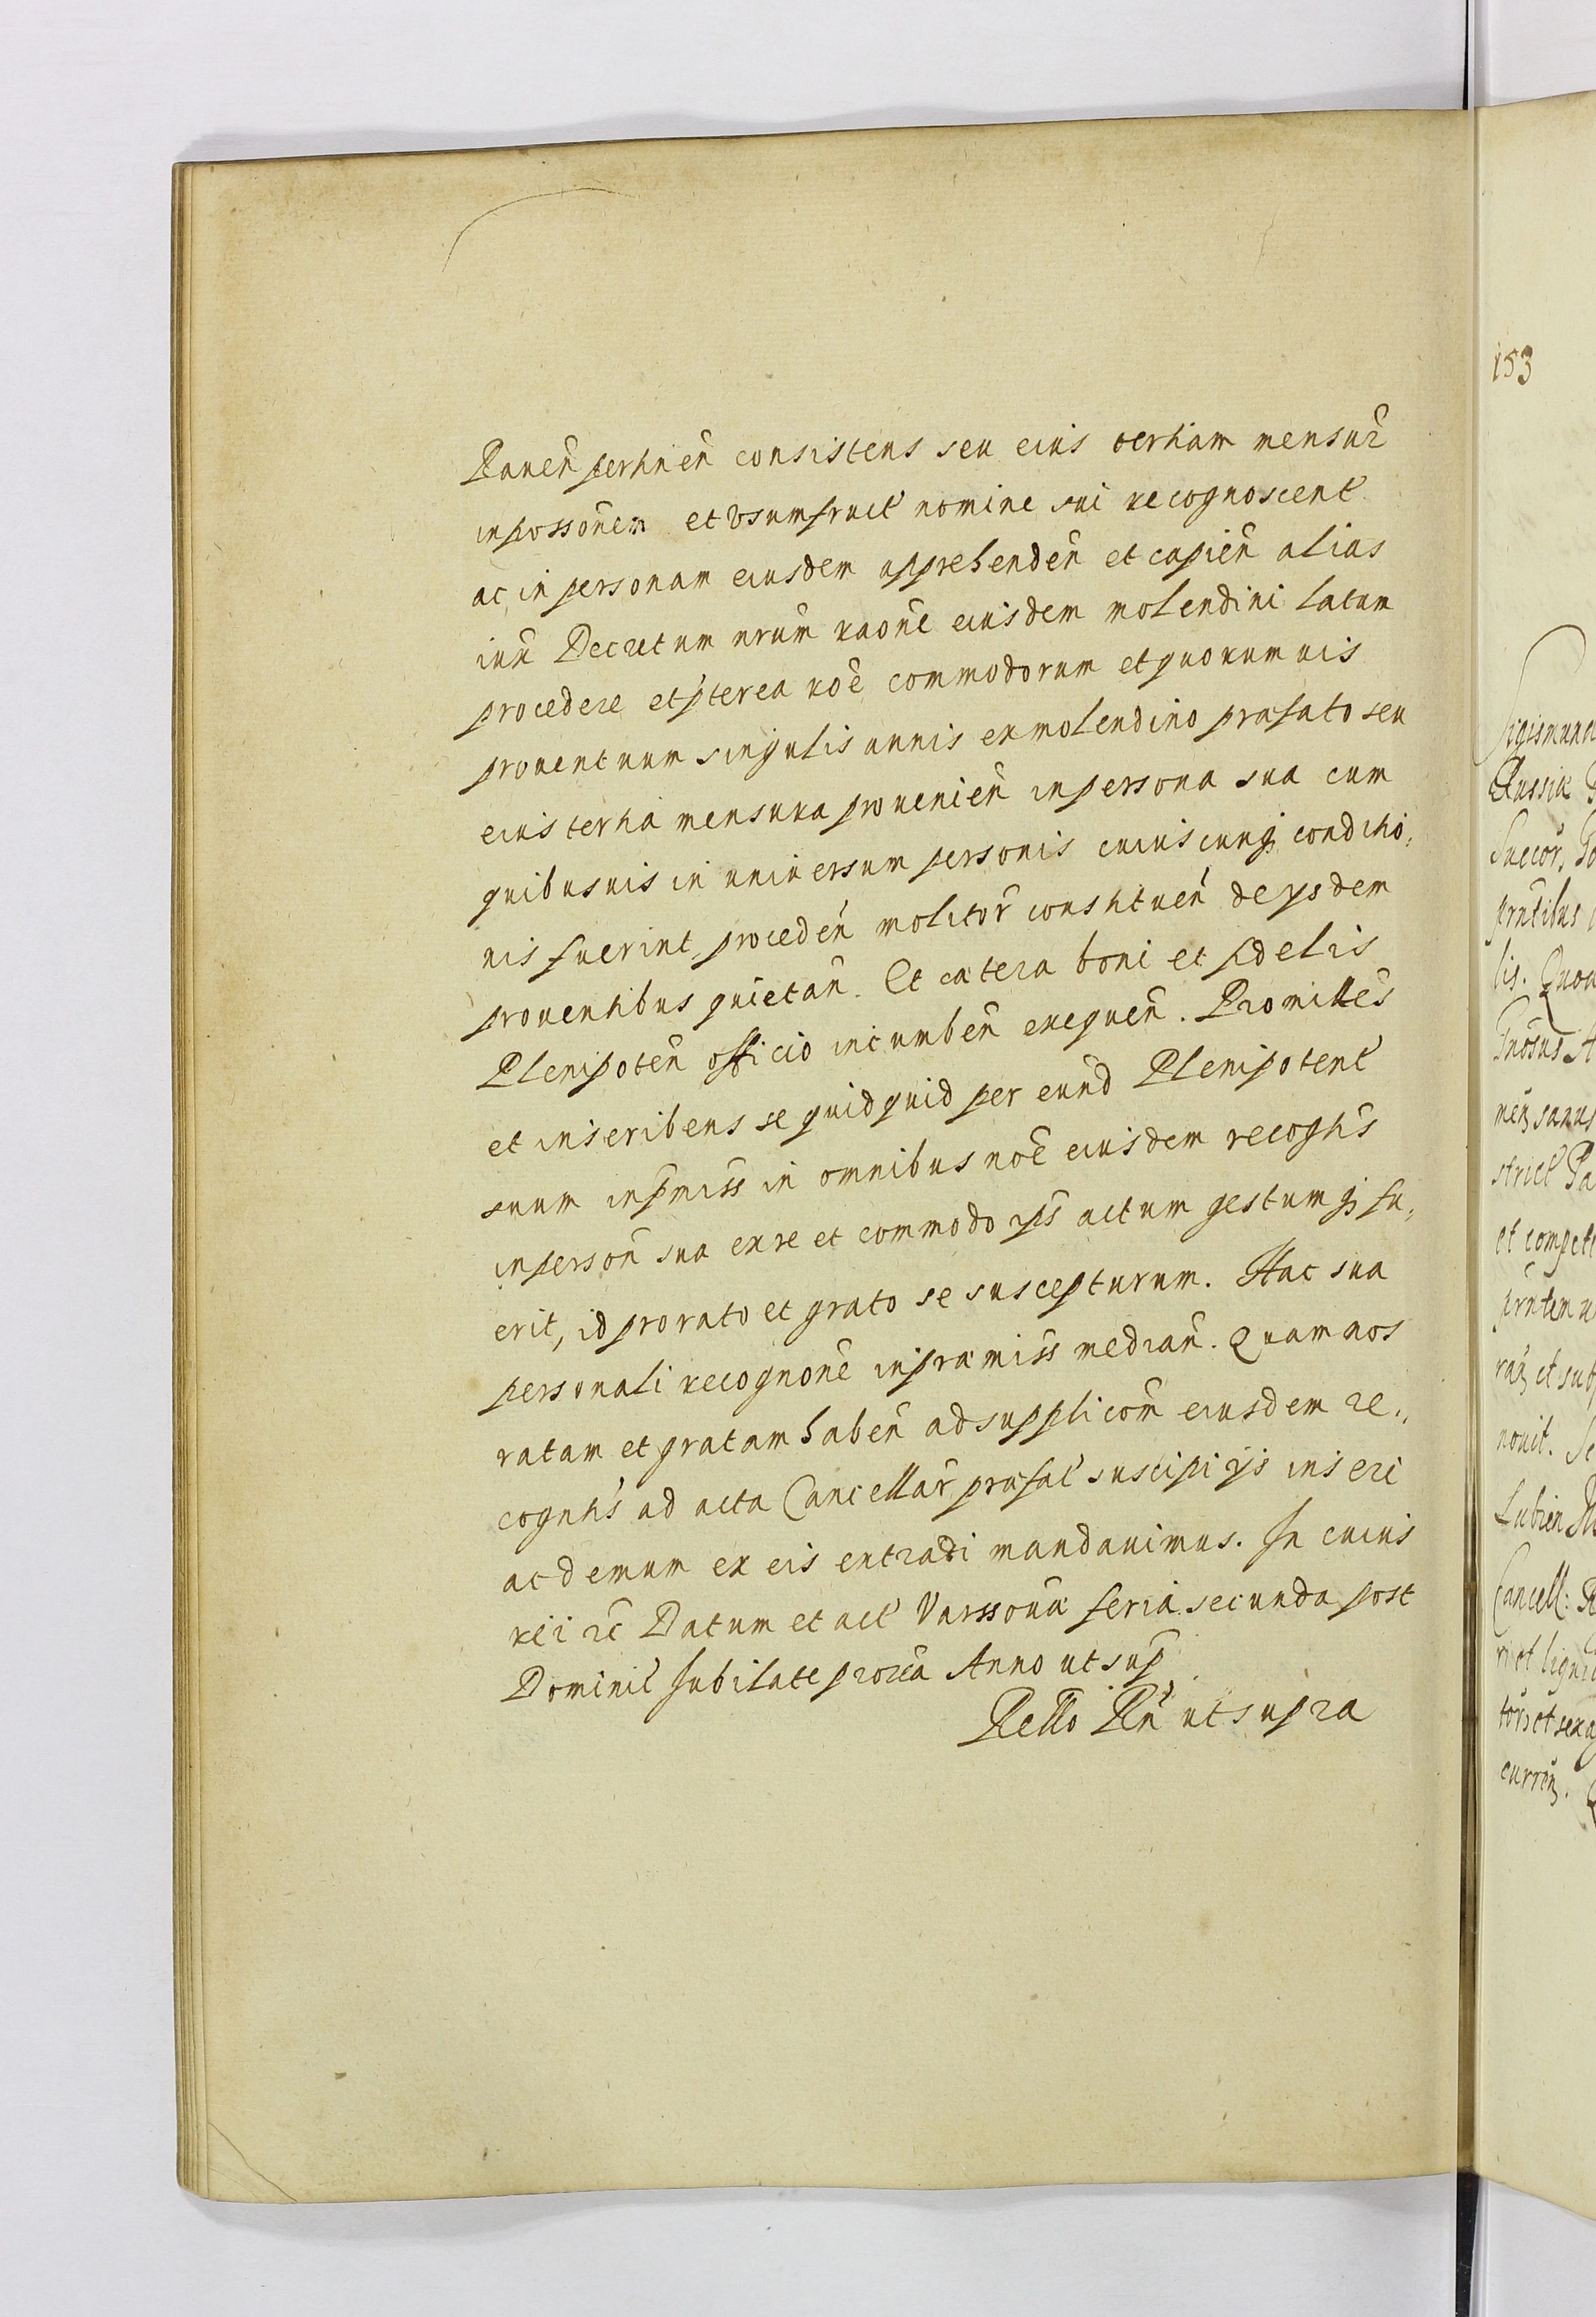 Raven̄ pertinen̄ consistens seu eius tertiam mensur̄
in possōnem et vsumfruct̄ nomine sui recognoscent̄
ac in personam eiusdem apprehenden̄ et capien̄ alias
iux̄ Decretum nrūm raōne eiusdem molendini latum
procedere et pterea rōe commodorum et quorumuis
prouentuum singulis annis ex molendino præfato seu
eius tertia mensura prouenien̄ in persona sua cum
quibusuis in uniuersum personis cuiuscunq; conditio,
nis fuerint, proceden̄ molitor̄ constituen̄ de ysdem
prouentibus quietan̄. Et cætera boni et fidelis
Plenipoten̄ officio incumben̄ exequen̄. Promittēs
et inscribens se quidquid per eund̄ Plenipotent̄
suum in pmiss̄ in omnibus nōe eiusdem recogtīs
in persōn sua ex re et commodo ip̄s actum gestumq; fu,
erit, id pro rato et grato se suscepturum. Hac sua
personali recognōne in præmiss̄ median̄. Quam nos
ratam et gratam haben̄ ad supplicōm eiusdem re,,
cogntīs ad acta Cancellar̄ præfat̄ suscipi ijs inseri
ac demum ex eis extradi mandauimus. In cuius
rei ec̄ Datum et act̄ Varssouiæ feria secunda post
Dominic̄ Jubilate proxīa Anno ut sup̄
Rello Rn̄ ut supra
153
Sigismun
Russiæ
Suecor,
prntibus
lis. Quon
Gnosus A
men sanus
strict Pa
et compet
prntem
ran et sub
nouit.
Lubien
Cancell:
ri et
tori et sexa
curren.